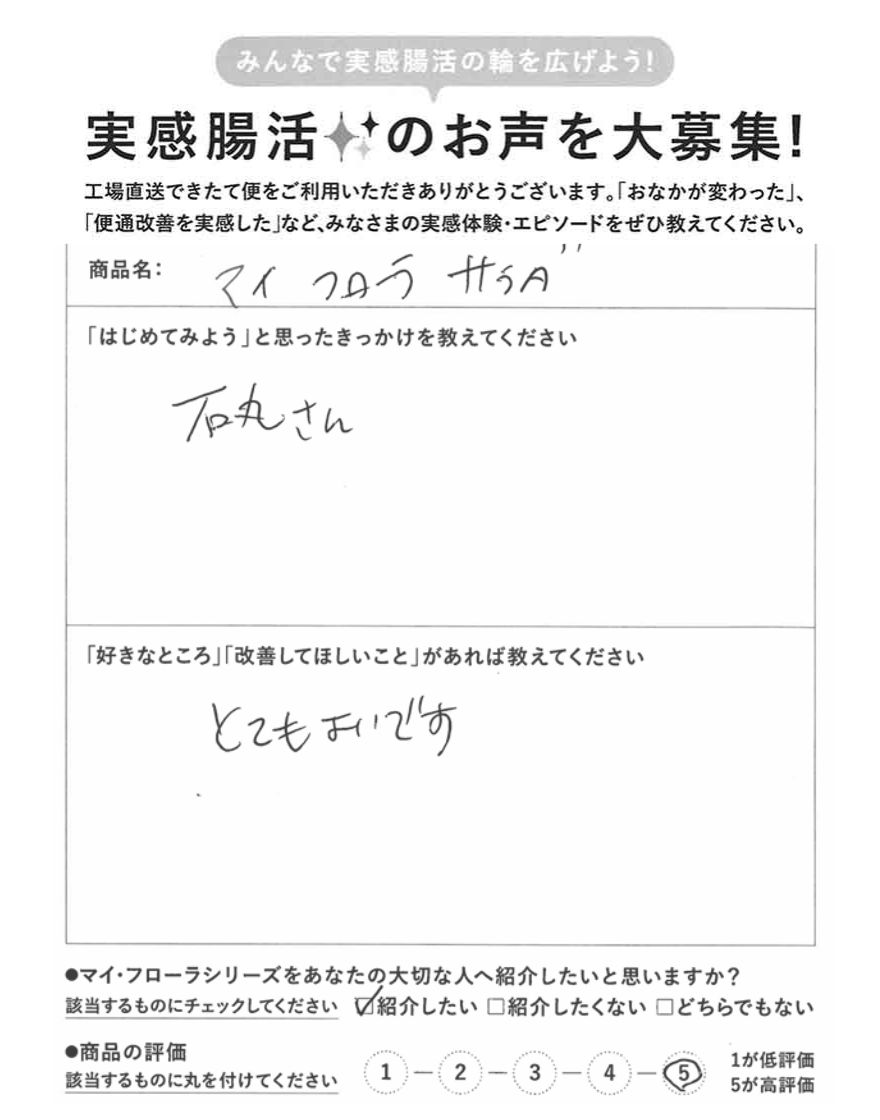 みんなで実感腸活の輪を広げよう!
実感腸活のお声を大募集!
工場直送できたて便をご利用いただきありがとうございます。「おなかが変わった」、
「便通改善を実感した」など、みなさまの実感体験・エピソードをぜひ教えてください。
商品名: マイ フロラ
「はじめてみよう」と思ったきっかけを教えてください
石丸さん
「好きなところ」「改善してほしいこと」があれば教えてください
とてもよいです
●マイ・フローラシリーズをあなたの大切な人へ紹介したいと思いますか?
該当するものにチェックしてください ☑紹介したい □紹介したくない □どちらでもない
●商品の評価
該当するものに丸を付けてください 1 - 2 - 3 - 4 - 5
1が低評価
5が高評価